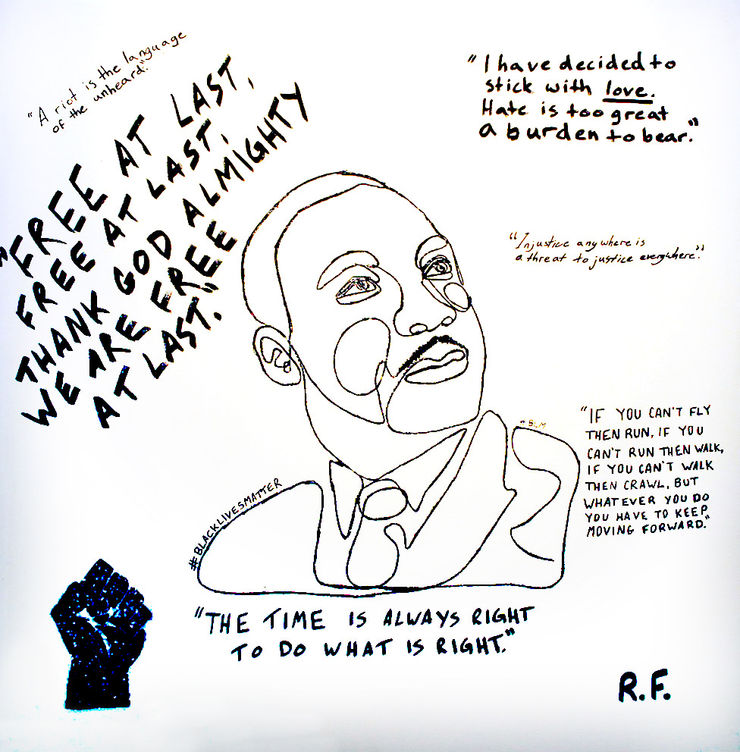 "A riot is the language
of the unheard."
"FREE AT LAST,
FREE AT LAST,
THANK GOD ALMIGHTY
WE ARE FREE
AT LAST."
"I have decided to
stick with love.
Hate is too great
a burden to bear."
"Injustice anywhere is
a threat to justice everywhere."
"IF YOU CAN'T FLY
THEN RUN, IF YOU
CAN'T RUN THEN WALK,
IF YOU CAN'T WALK
THEN CRAWL, BUT
WHATEVER YOU DO
YOU HAVE TO KEEP
MOVING FORWARD."
#BLM
#BLACKLIVESMATTER
"THE TIME IS ALWAYS RIGHT
TO DO WHAT IS RIGHT."
R.F.